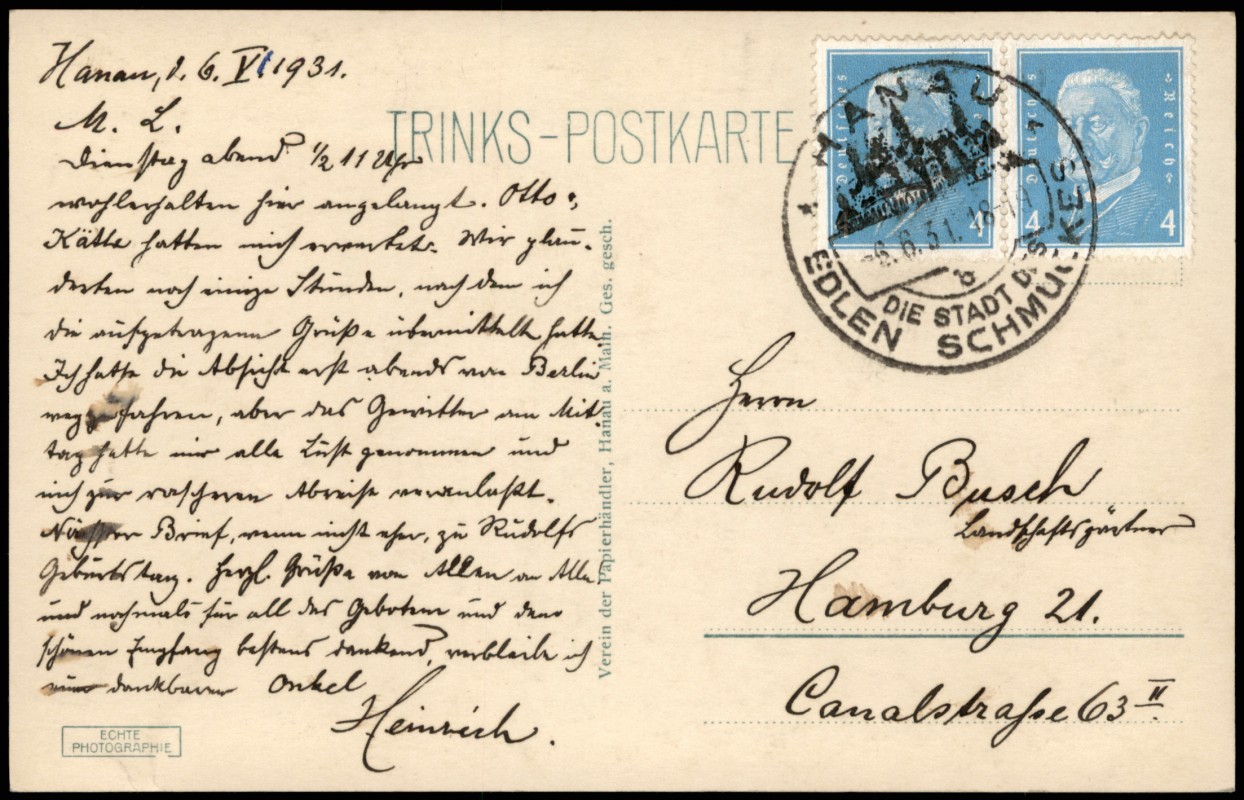 Hanau, d. 6. VI 1931.
M. L.
Dienstag abend ½ 11 Uhr
wohlerhalten hier angelangt. Otto &
Käthe hatten mich erwartet. Wir plau-
derten noch einige Stunden, nach dem ich
die aufgetragenen Grüße übermittelt hatte.
Ich hatte die Absicht erst abends von Berlin
wegzufahren, aber das Gewitter am Mit-
tag hatte mir alle Lust genommen und
mich zur rascheren Abreise veranlaßt.
Nächster Brief, wenn nicht eher, zu Rudolfs
Geburtstag. Herzl. Grüße von Allen an Alle
und nochmals für all das Gebotene und den
schönen Empfang bestens dankend, verbleibe ich
euer dankbarer Onkel
Heinrich.
ECHTE
PHOTOGRAPHIE
TRINKS-POSTKARTE
Verein der Papierhändler, Hanau a. Main. Ges. gesch.
Deutsches Reich
4 4
Deutsches Reich
4 4
HANAU
6.6.31. 18-19
DIE STADT DES
EDLEN SCHMUCKES
Herrn
Rudolf Busch
Landschaftsgärtner
Hamburg 21.
Canalstrasse 63 II.